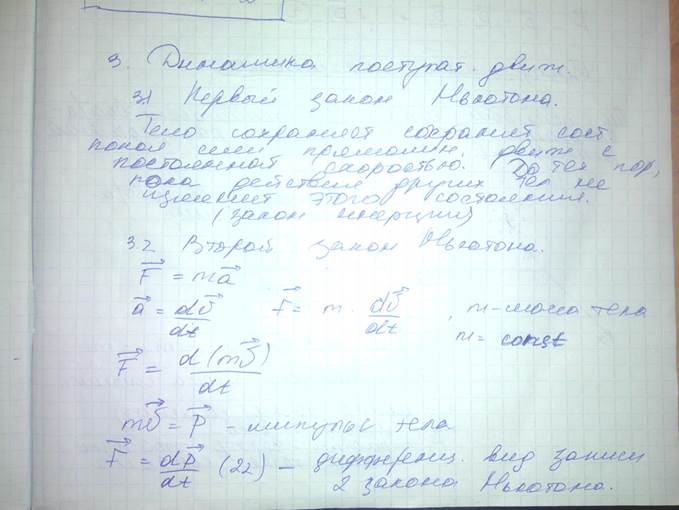 3. Динамика поступат. движ.
3.1 Первый закон Ньютона.
Тело сохраняет сохраняет сост.
покоя или прямолин. движ с
постоянной скоростью. До тех пор,
пока действия других тел не
изменяет этого состояния.
(закон инерции)
3.2 Второй закон Ньютона.
F⃗ = ma⃗
a⃗ = dv⃗/dt F⃗ = m · dv⃗/dt, m - масса тела
m = const
F⃗ = d(mv⃗)/dt
mv⃗ = P⃗ - импульс тела
F⃗ = dP⃗/dt (22) - дифференц. вид записи
2 закона Ньютона.